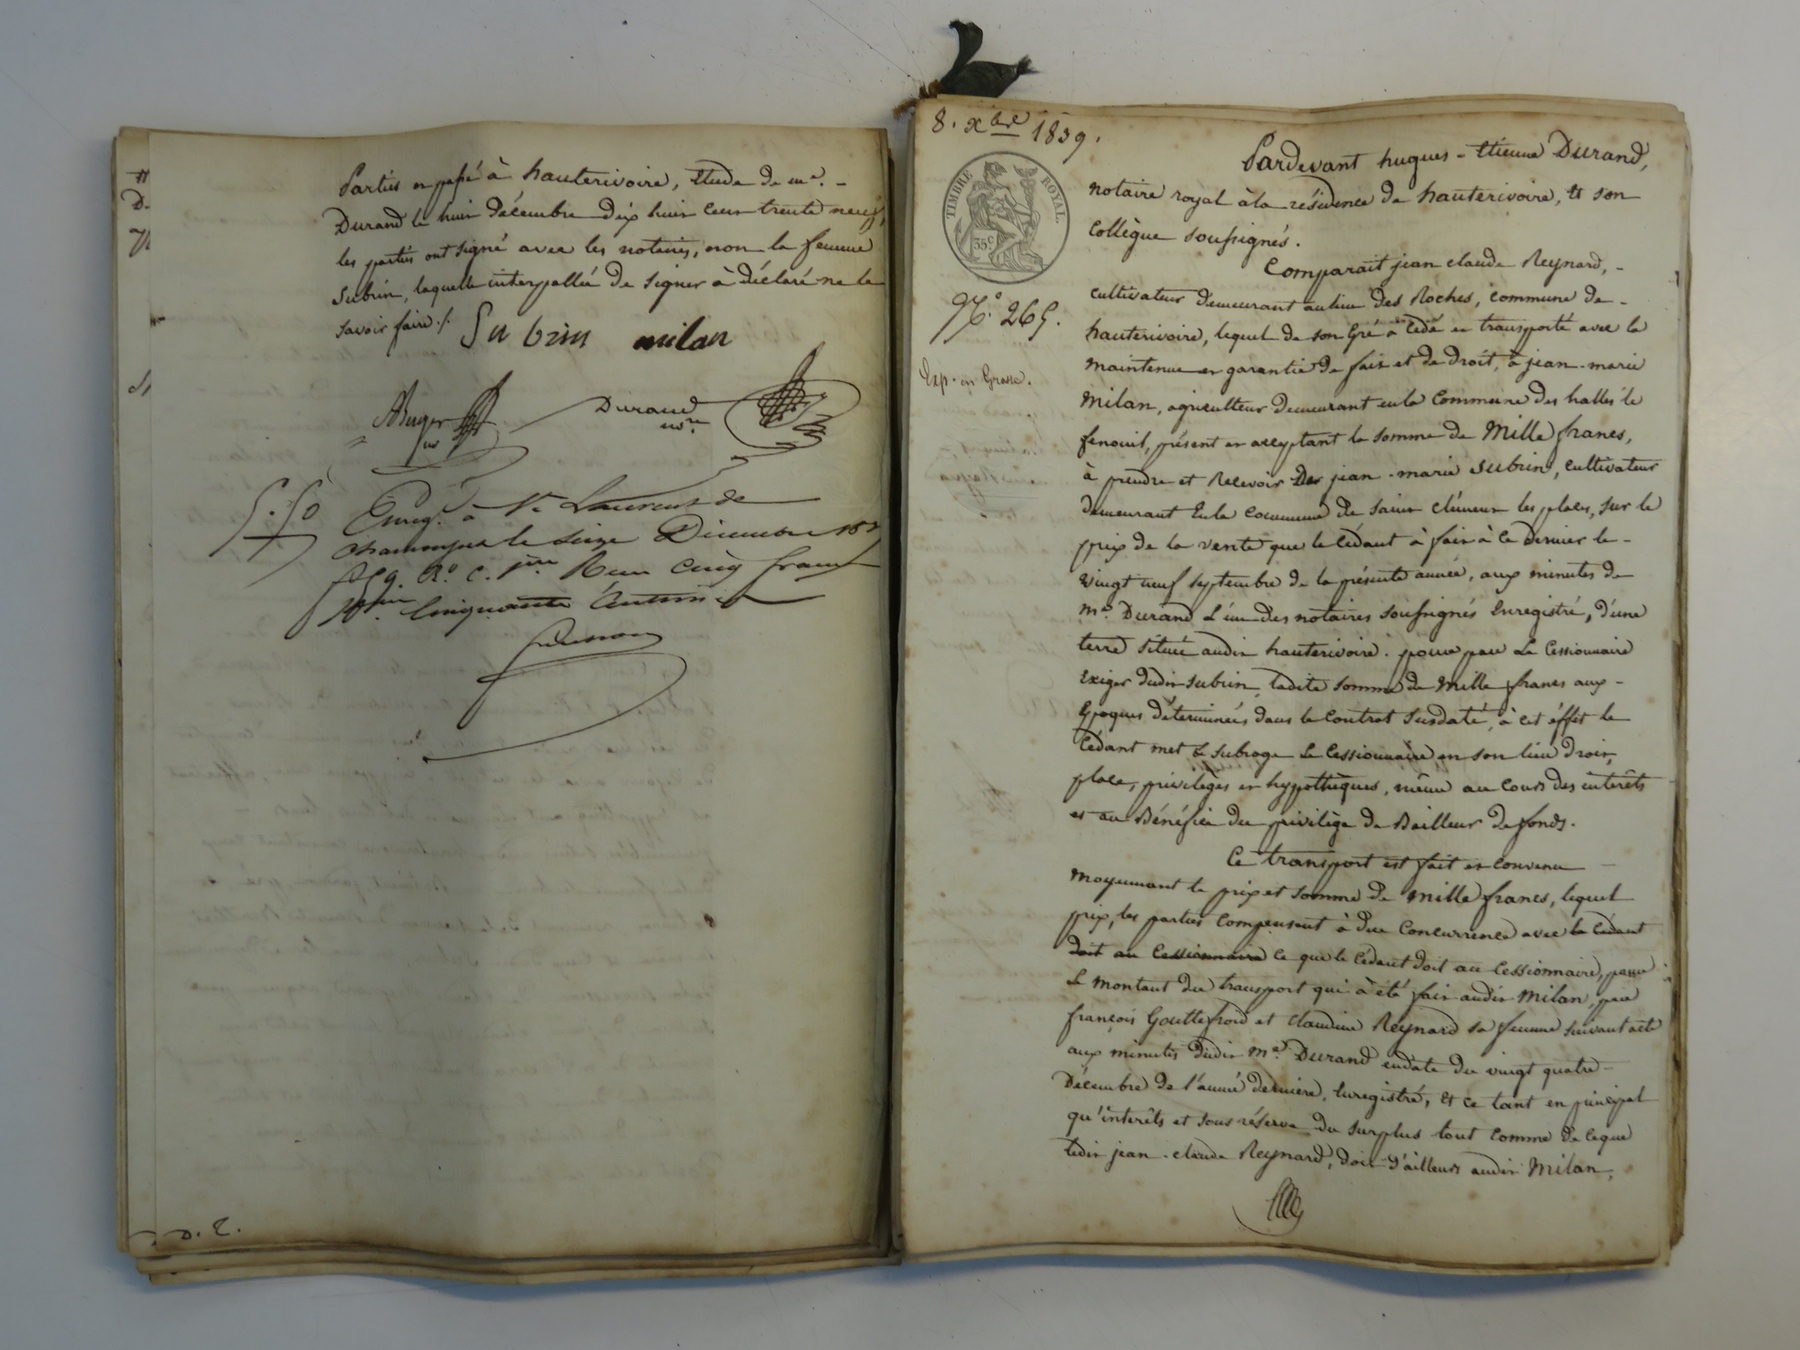 Parties en passé à hauterivoire, Etude de me. -
Durand le huit décembre dix huit cent trente neuf,
les parties ont signé avec les notaires, non la femme
Subrin, laquelle interpellée de signer à déclaré ne le
savoir faire ./.
Subrin milan
Durand
nore
5.50
Enreg. à St Laurent de
chamousset le seize Décembre 183
f° 59. Ro. c. 1ere Reçu cinq francs
cinquante centimes
D. C.
8. Xbre 1839.
TIMBRE ROYAL.
35c
No. 265.
Exp. en Grosse.
Pardevant hugues - Etienne Durand,
notaire royal à la résidence de hauterivoire, et son
Collègue soussignés.
Comparait jean claude Reynard, -
cultivateur demeurant au lieu des Roches, commune de -
hauterivoire, lequel de son Gré a cédé et transporté avec la
maintenue et garantie de fait et de droit, à jean-marie
Milan, agriculteur demeurant en la Commune des halles le
fenouil, présent et acceptant la somme de Mille francs,
à prendre et Recevoir Des jean-marie Subrin, cultivateur
demeurant En la commune de saint clément les places, sur le
prix de la vente que le Cédant à fait à ce dernier le -
vingt neuf septembre de la présente année, aux minutes de
me. Durand L'un des notaires soussignés Enregistré, d'une
terre située audit hauterivoire. pour par Le Cessionnaire
Exiger dudit Subrin, ladite somme de Mille francs aux -
Epoques déterminées dans le Contrat susdaté, à cet éffet le
Cédant met & subroge Le Cessionnaire en son lieu droit,
place, privilèges et hypothèques, même au cours des intérêts
et au Bénéfice du privilège de Bailleur de fonds.
Ce transport est fait et convenu
moyennant le prix et somme de mille francs, lequel
prix, les parties compensent à due Concurrence avec le Cédant
doit au Cessionnaire ce que le Cédant doit au Cessionnaire, pour
Le montant du transport qui à été fait audit Milan, par
françois Gouttefroid et Claudine Reynard sa femme suivant acte
aux minutes dudit me. Durand en date du vingt quatre -
Décembre de l'année dernière, Enregistré, et ce tant en principal
qu'intérêts et sous réserve du surplus tout comme de ce que
ledit jean-claude Reynard, doit d'ailleurs audit Milan,